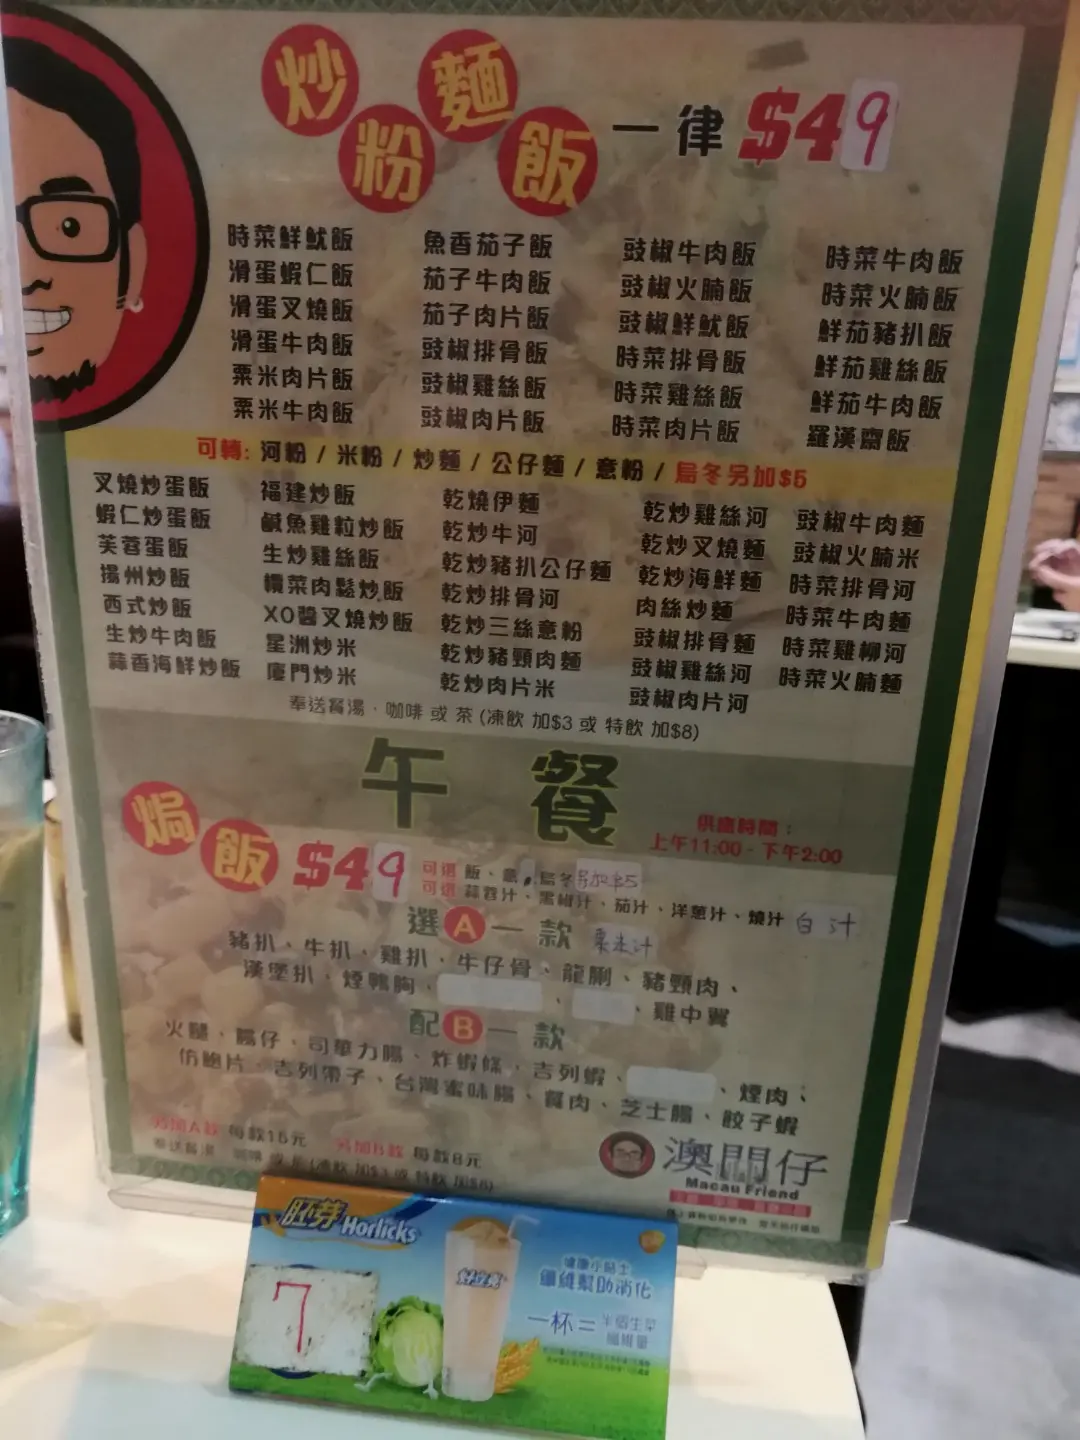 炒粉麵飯 一律 $49
時菜鮮魷飯 魚香茄子飯 豉椒牛肉飯 時菜牛肉飯
滑蛋蝦仁飯 茄子牛肉飯 豉椒火腩飯 時菜火腩飯
滑蛋叉燒飯 茄子肉片飯 豉椒鮮魷飯 鮮茄豬扒飯
滑蛋牛肉飯 豉椒排骨飯 時菜排骨飯 鮮茄雞絲飯
粟米肉片飯 豉椒雞絲飯 時菜雞絲飯 鮮茄牛肉飯
粟米牛肉飯 豉椒肉片飯 時菜肉片飯 羅漢齋飯
可轉: 河粉 / 米粉 / 炒麵 / 公仔麵 / 意粉 / 烏冬另加$5
叉燒炒蛋飯 福建炒飯 乾燒伊麵 乾炒雞絲河 豉椒牛肉麵
蝦仁炒蛋飯 鹹魚雞粒炒飯 乾炒牛河 乾炒叉燒麵 豉椒火腩米
芙蓉蛋飯 生炒雞絲飯 乾炒豬扒公仔麵 乾炒海鮮麵 時菜排骨河
揚州炒飯 欖菜肉鬆炒飯 乾炒排骨河 肉絲炒麵 時菜牛肉麵
西式炒飯 XO醬叉燒炒飯 乾炒三絲意粉 豉椒排骨麵 時菜雞柳河
生炒牛肉飯 星洲炒米 乾炒豬頸肉麵 豉椒雞絲河 時菜火腩麵
蒜香海鮮炒飯 廈門炒米 乾炒肉片米 豉椒肉片河
奉送餐湯．咖啡 或 茶 (凍飲 加$3 或 特飲 加$8)
午餐
供應時間：
上午11:00 - 下午2:00
焗飯 $49
可選 飯、意、烏冬 另加$5
可選 蒜蓉汁、黑椒汁、茄汁、洋蔥汁、燒汁 白汁
選 A 一款 粟米汁
豬扒、牛扒、雞扒、牛仔骨、龍脷、豬頸肉、
漢堡扒、煙鴨胸、 、 、雞中翼
配 B 一款
火腿、腸仔、司華力腸、炸蝦條、吉列蝦、 、煙肉、
仿鮑片、吉列帶子、台灣蜜味腸、餐肉、芝士腸、餃子蝦
另加A款 每款15元 另加B款 每款8元
奉送餐湯 咖啡 或 茶 (凍飲 加$3 或 特飲 加$8)
澳門仔
Macau Friend
胚芽 Horlicks
7
好立克
健康小貼士
纖維幫助消化
一杯= 半個生菜
纖維量